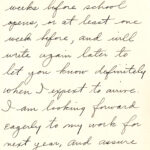 weeks before school
opens, or at least one
week before, and will
write again later to
let you know definitely
when I expect to arrive.
I am looking forward
eagerly to my work for
next year, and assure